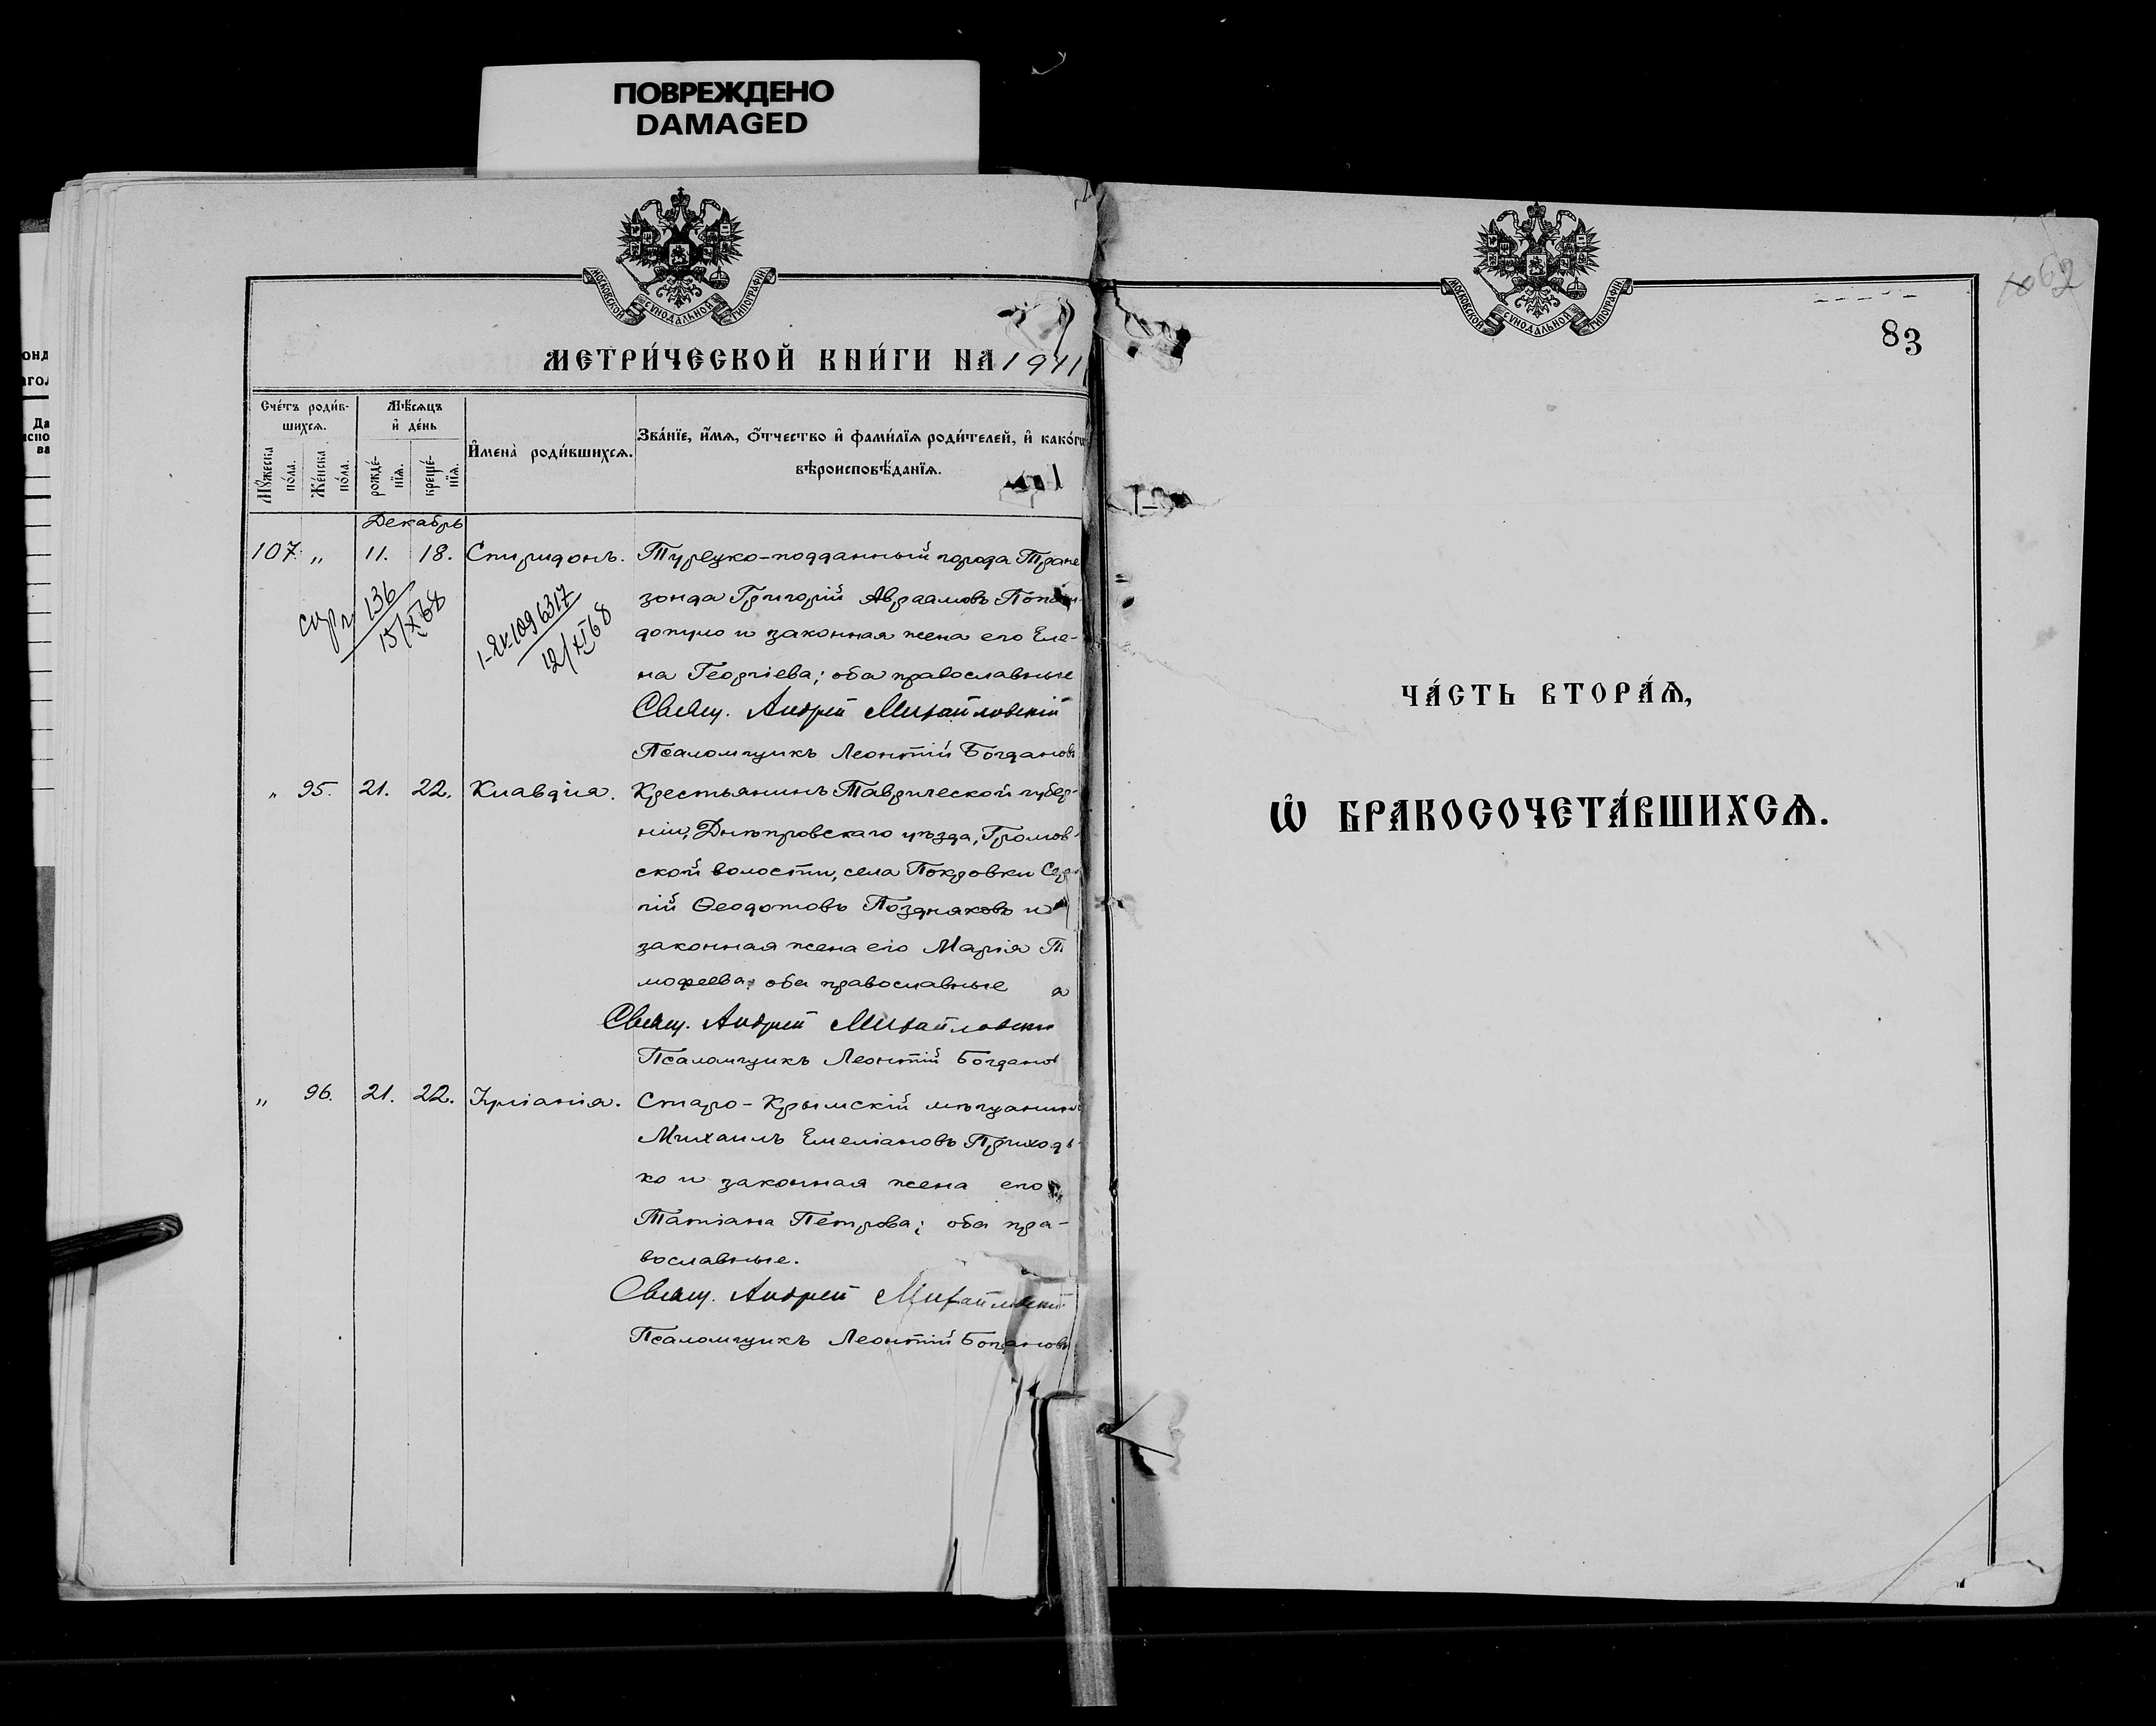 ПОВРЕЖДЕНО
DAMAGED
МОСКОВСКОЙ СѴНОДАЛЬНОЙ ТИПОГРАФІИ
МЕТРИ́ЧЕСКОЙ КНИ́ГИ НА 1911
Сче́тъ роди́в-
шихсѧ.
Мѣ́сѧцъ
и҆ де́нь
И҆мена̀ роди́вшихсѧ.
Зва́нїе, и҆́мѧ, ѻ҆́тчество и҆ фами́лїѧ роди́телей, и҆ како́гѡ
вѣроисповѣ́данїѧ.
Мꙋ́жеска
по́ла.
Же́нска
по́ла.
рожде́-
нїѧ.
креще́-
нїѧ.
Декабрь
107. „ 11. 18. Спиридонъ. Турецко-подданный города Трапе
зонда Григорій Авраамовъ
допуло и законная жена его Еле-
на Георгіева; оба православные
Свящ. Андрей Михайловскій
Псаломщикъ Леонтій Богдановъ
136
15/XI 68
1-ЯК 1096317
12/XI 68
„ 95. 21. 22. Клавдія. Крестьянинъ Таврической губер-
ніи, Днѣпровскаго уѣзда, Громов-
ской волости, села Покровки Сер
гій Ѳеодотовъ Поздняковъ и
законная жена его Марія Ти
мофеева; оба православные
Свящ. Андрей Михайловскій
Псаломщикъ Леонтій Богданов
„ 96. 21. 22. Іуліанія. Старо-Крымскій мѣщанинъ
Михаилъ Емеліановъ Приходь-
ко и законная жена его
Татіана Петрова; оба пра-
вославные.
Свящ. Андрей Михайловскій
Псаломщикъ Леонтій Богдановъ
МОСКОВСКОЙ СѴНОДАЛЬНОЙ ТИПОГРАФІИ
62
83
ЧА́СТЬ ВТОРА́Ѧ,
Ѽ БРАКОСОЧЕТА́ВШИХСѦ.